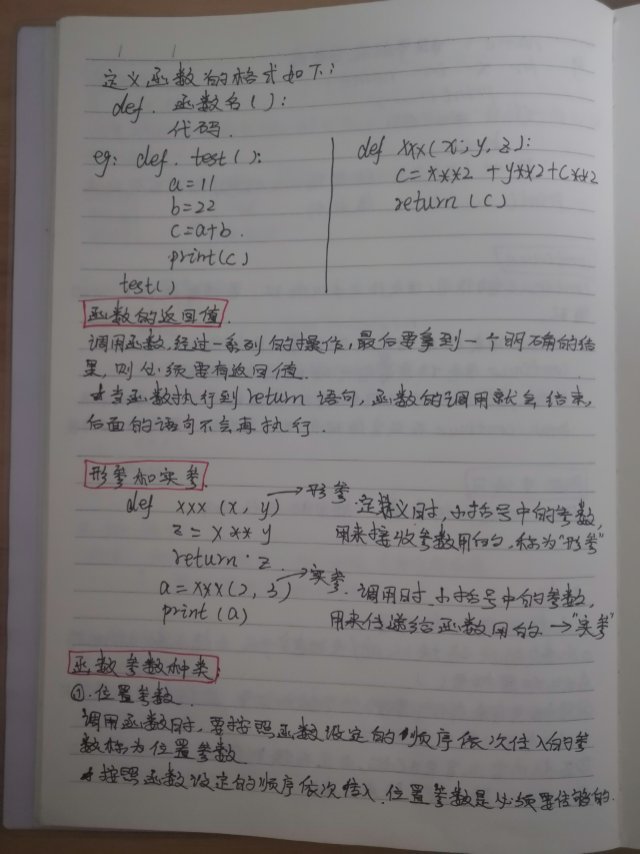 定义函数的格式如下:
def. 函数名():
代码.
eg: def. test():
a=11
b=22
c=a+b.
print(c)
test()
def xxx(x, y, z):
c=x**2 +y**2+c**2
return (c)
函数的返回值.
调用函数,经过一系列的操作,最后要拿到一个明确的结
果,则必须要有返回值.
*当函数执行到return语句,函数的调用就会结束,
后面的语句不会再执行.
形参和实参.
def xxx (x, y) → 形参. 定义时,小括号中的参数,
z = x ** y 用来接收参数用的,称为"形参"
return z.
a = xxx(2, 3) → 实参. 调用时,小括号中的参数,
print (a) 用来传递给函数用的 → "实参"
函数参数种类:
①.位置参数.
调用函数时,要按照函数设定的顺序依次传入的参
数称为位置参数
*按照函数设定的顺序依次传入.位置参数是必须要传够的.